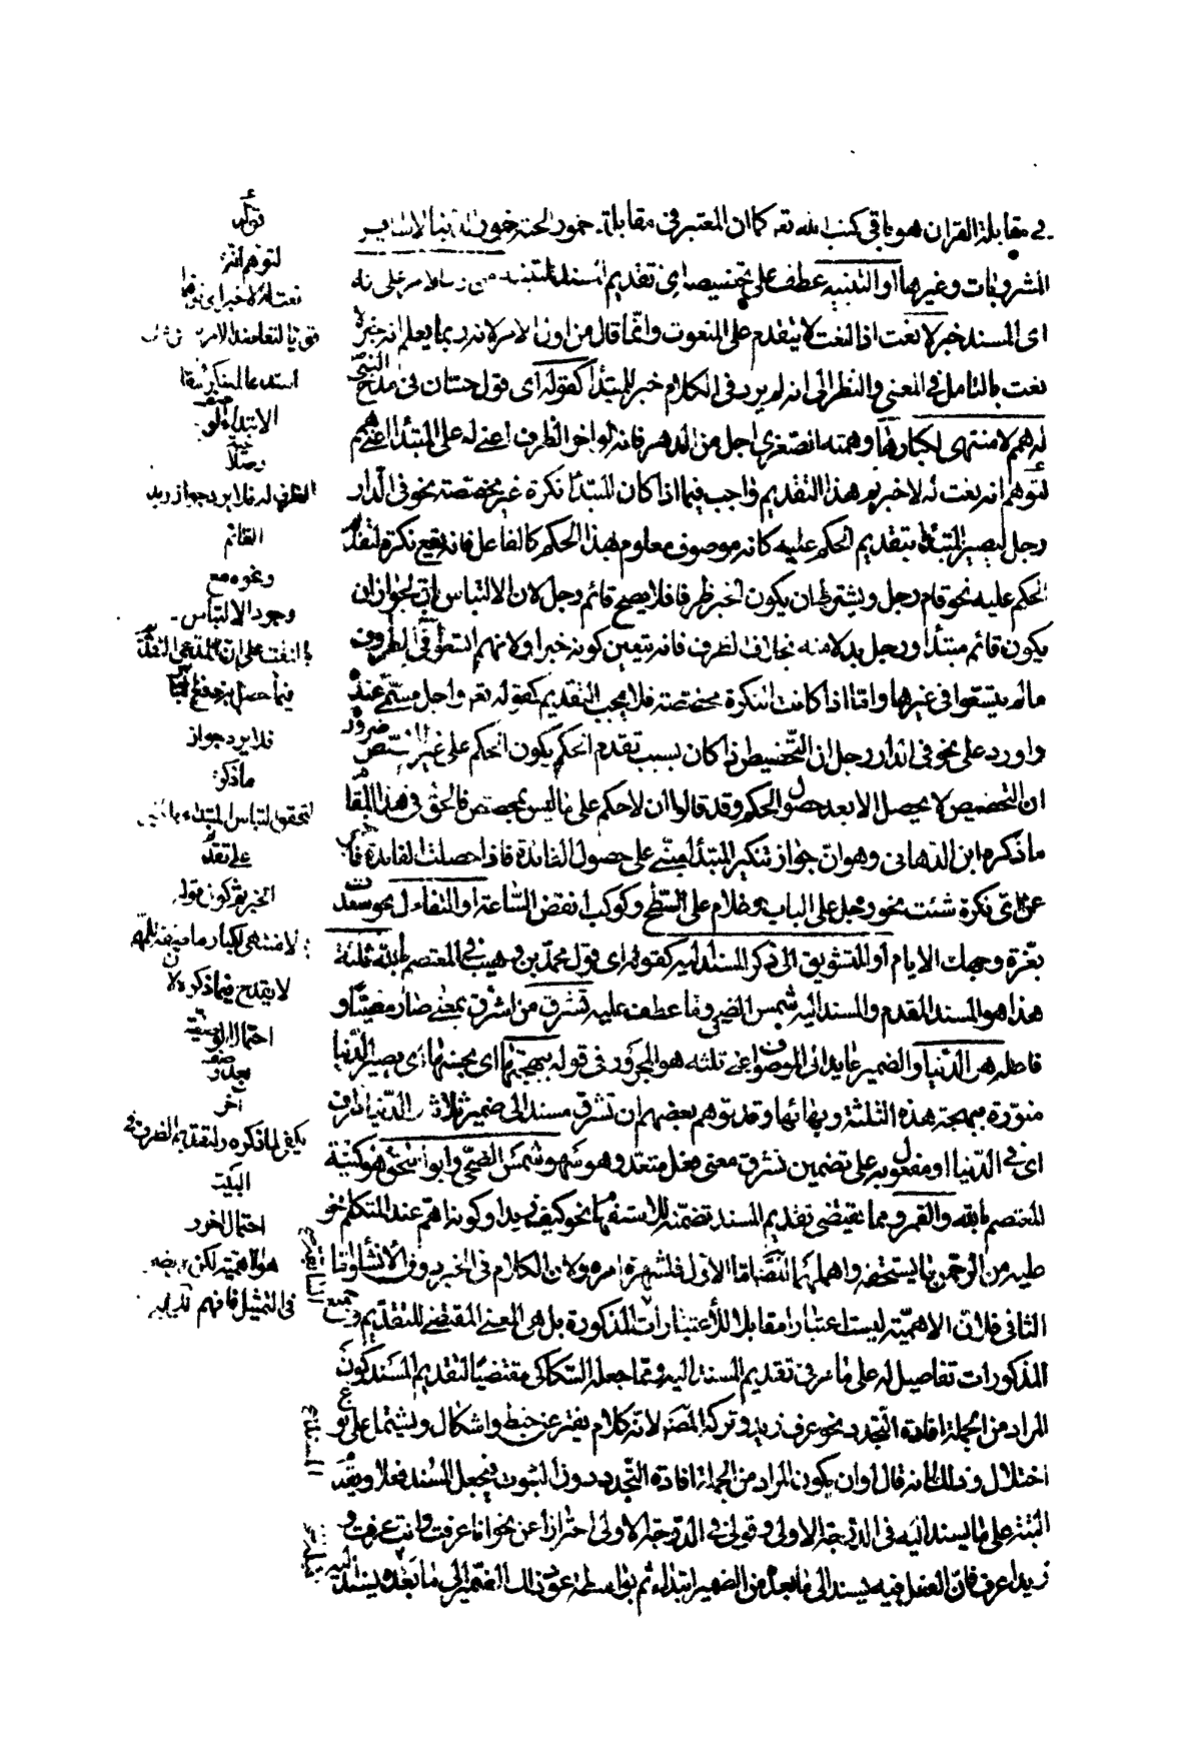 في مقابلة القران هو باقي كتب الله تع كما ان المعتبر في مقابلة خمور الجنة خمور الدنيا لا سائر
المشروبات وغيرها او التنبيه عطف على تخصيصه اي تقديم المسند للتنبيه من اول الامر على انه
اي المسند خبر لا نعت اذ النعت لا يتقدم على المنعوت وانما قال من اول الامر لانه ربما يعلم انه خبر لا
نعت بالتامل في المعنى والنظر الى انه لم يرد في الكلام خبر للمبتدأ كقوله اي قول حسان في مدح النبي
له همم لا منتهى لكبارها وهمته الصغرى اجل من الدهر فانه لو اخر الظرف اعني له على المبتدأ اعني همم
لتوهم انه نعت له لا خبر ثم هذا التقديم واجب فيما اذا كان المبتدأ نكرة غير مخصصة نحو في الدار
رجل ليصير المبتدأ بتقديم الحكم عليه كانه موصوف معلوم بهذا الحكم كالفاعل فانه يقع نكرة لتقدم
الحكم عليه نحو قام رجل ويشترط ان يكون الخبر ظرفا فلا يصح قائم رجل لان الالتباس باق لجواز ان
يكون قائم مبتدأ ورجل بدلا منه بخلاف الظرف فانه يتعين كونه خبرا ولانهم اتسعوا في الظروف
ما لم يتسعوا في غيرها واما اذا كانت النكرة مخصصة فلا يجب التقديم كقوله تع واجل مسمى عنده
واورد على نحو في الدار رجل ان التخصيص اذا كان بسبب تقدم الحكم يكون الحكم على غير المختص ضرورة
ان التخصيص لا يحصل الا بعد حصول الحكم وقد قالوا ان لا حكم على ما ليس بمختص فالحق في هذا المقام
ما ذكره ابن الدهان وهو ان جواز تنكير المبتدأ مبني على حصول الفائدة فاذا حصلت الفائدة فاخبر
عن اي نكرة شئت نحو رجل على الباب وغلام على السطح وكوكب انقض الساعة او التفاءل نحو سعدت
بغرة وجهك الايام او التشويق الى ذكر المسند اليه كقوله اي قول محمد بن وهيب في المعتصم بالله ثلثة
هذا هو المسند المقدم والمسند اليه شمس الضحى وما عطف عليه تشرق من اشرق بمعنى صار مضيئا و
فاعله هي الدنيا والضمير عايد الى الموصوف اعني ثلثة هو المجرور في قوله ببهجتها اي بحسنها اي يصير الدنيا
منورة ببهجة هذه الثلثة وبهائها وقد توهم بعضهم ان تشرق مسند الى ضمير ثلاثة والدنيا ظرف
اي في الدنيا او مفعول به على تضمين تشرق معنى فعل متعد وهو سهو شمس الضحى وابو اسحق هو كنية
المعتصم بالله والقمر ومما يقتضي تقديم المسند تضمنه للاستفهام نحو كيف زيد او كونه اهم عند المتكلم نحو
عليه من الرحمن ما يستحقه واهملهما المصنف اما الاول فلشهرة امره ولان الكلام في الخبر دون الانشاء واما
الثاني فلان الاهمية ليست اعتبارا مقابلا للاعتبارات المذكورة بل هي المعنى المقتضي للتقديم وجميع
المذكورات تفاصيل له على ما مر في تقديم المسند اليه ومما جعله السكاكي مقتضيا لتقديم المسند كون
المراد من الجملة افادة التجدد نحو عرف زيد وتركه المصنف لانه كلام يفتر عن خبط واشكال ويشتمل على نوع
اختلال وذلك لانه قال او ان يكون المراد من الجملة افادة التجدد دون الثبوت فيجعل المسند فعلا ويقدم
البتة على ما يسند اليه في الدرجة الاولى وقولي في الدرجة الاولى احترازا عن نحو انا عرفت وانت عرفت و
زيد عرف فان الفعل فيه يسند الى ما بعده من الضمير ابتداء ثم بواسطة عود ذلك الضمير الى ما بعده ويسند اليه
قوله
لتوهم انه
نعت له لا خبر
الابتداء
القائم
ونحوه مع
وجود الالتباس
فلا يرد جواز
ما ذكر
على تقدم
لا يقدح فيما ذكره لان
احتمال الوصفية
آخر
البيت
احتمال اخر
في التمثيل فافهم